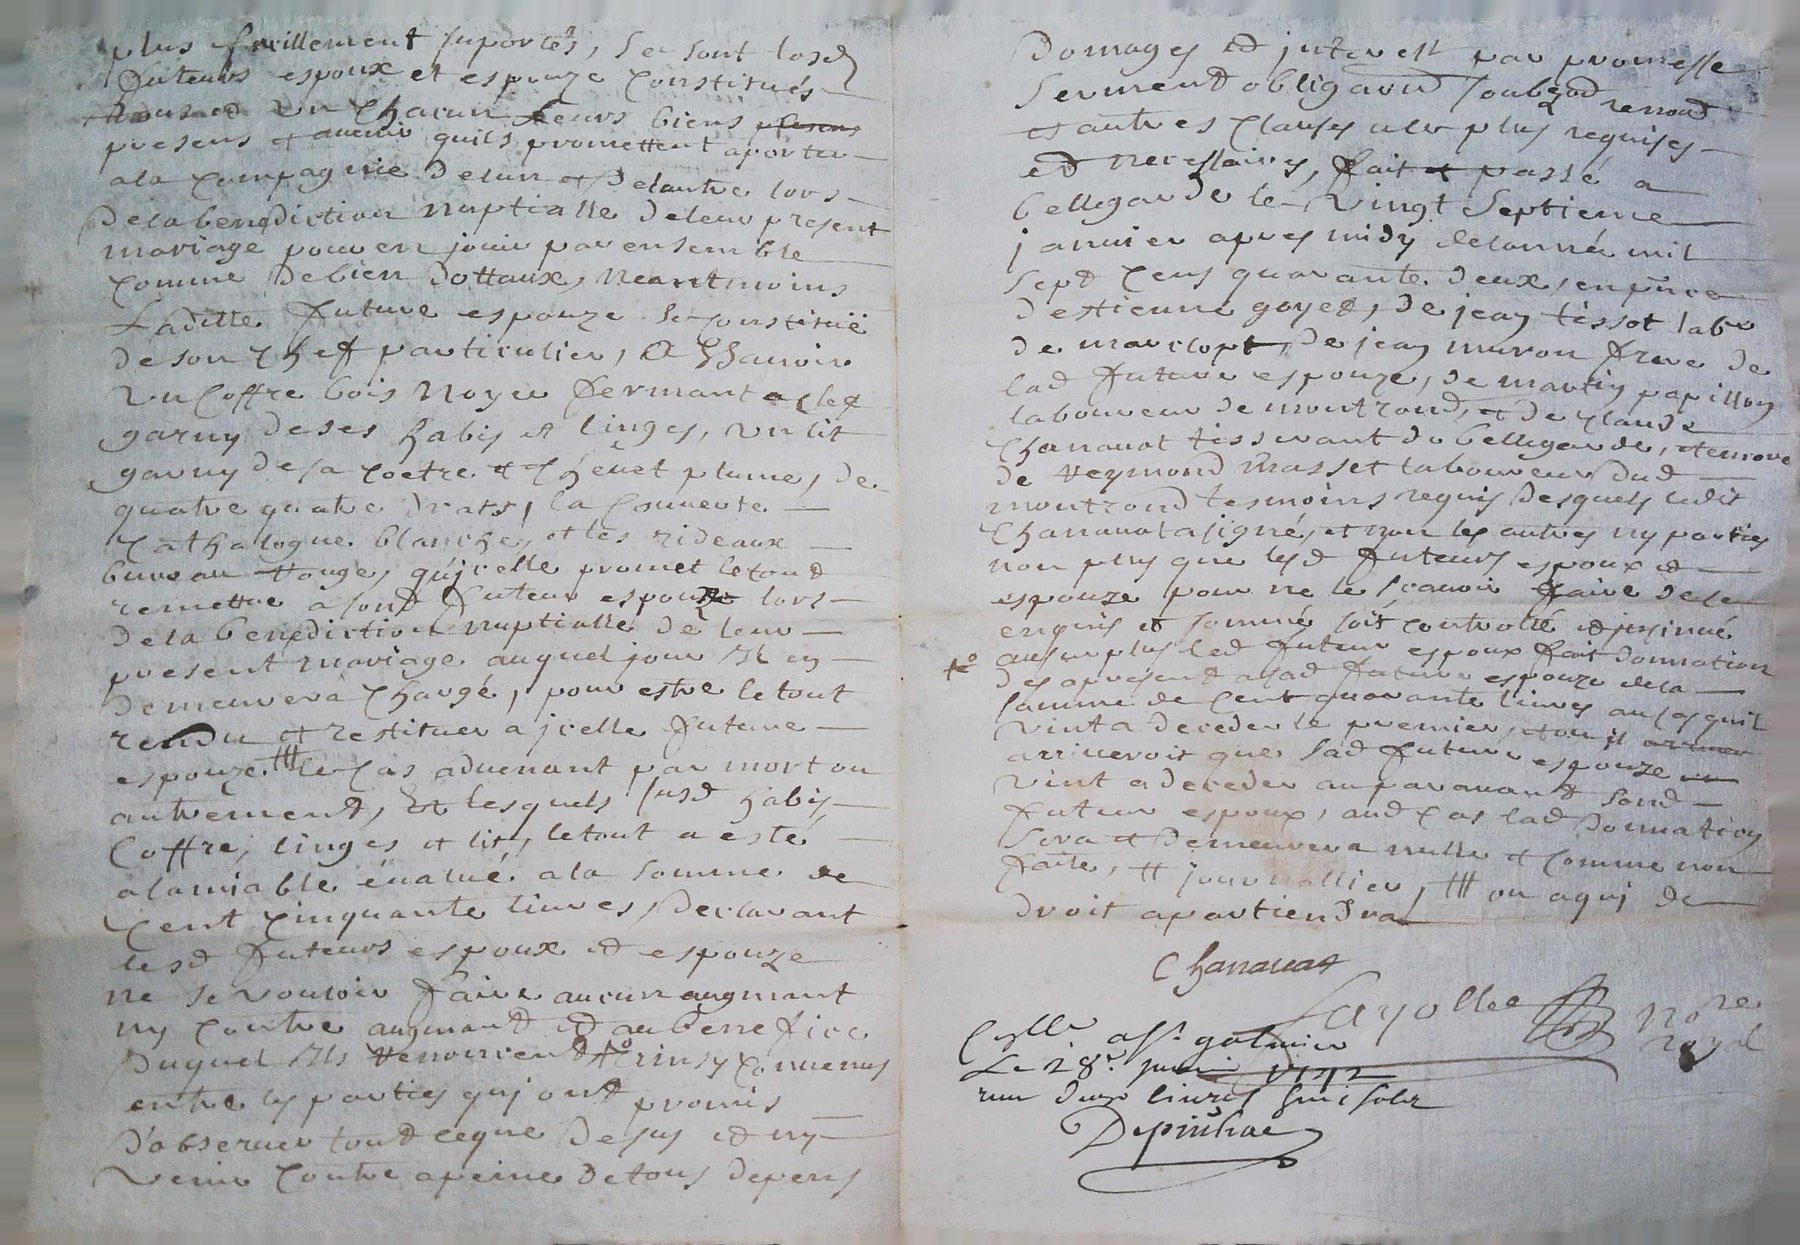 plus facillement suportés, se sont lesd
futeurs espoux et espouze constitués
tous et un chacun leurs biens
presens et avenir quils promettent aporter
ala compagnie delun et delautre lors
dela benediction nuptialle deleur present
mariage pour en jouir par ensemble
comme de bien dottaux, neantmoins
Laditte future espouze se constitüe
de son cheff particulier, a scavoir
un coffre bois noyer fermant a clef
garny de ses habis et linges, un lit
garny de sa coetre et chevet plume, de
quatre quatre draps, la couverte
cathalogne blanche, et les rideaux
bureau rouge, qu'jcelle promet letout
remettre à sond futeur espoux lors
dela benediction nuptialle de leur
present mariage auquel jour Il en
demeurera chargé, pour estre le tout
rendu et restituer a jcelle future
espouze ttt le cas advenant par mort ou
autrement, Et lesquels susd habis
coffre, linges et lit, le tout a esté
alamiable évalué ala somme de
cent cinquante livres, declarant
lesd futeurs espoux et espouze
ne se vouloir faire aucun augmant
ny contre augmant et au benefice
duquel Ils renoncent ainsy convenus
entre les parties quj ont promis
d'observer tout ceque desus et ny
venir contre apeine de tous depens
domages et jnterest par promesse
serment obligaõn soubzod renoõn
et autres clauses aler plus requises
et necessaires, fait et passé a
bellegarde le vingt septieme
janvier apres midy delannée mil
sept cens quarante deux, en pñce
destienne goyet, de jean tissot labr
de marclopt, de jean muron frere de
lad future espouze, de martin papillon
laboureur de montrond, et de claude
chanavat tisserant de bellegarde, et encore
de Reymond Masset laboureur dud
montrond tesmoins requis desquels ledit
chanavat a signé, et non les autres ny parties
non plus que lesd futeurs espoux et
espouze pour ne le scavoir faire dele
enquis et sommé soit controllé et jnsinué
au surplus led futeur espoux fait donnation
des apresent a sad future espouze dela
somme de cent quarante livres au cas quil
vint a deceder le premier, et ou il
arriveroit que sad future espouze
vint a deceder auparavant sond
futeur espoux, aud cas lad donnation
sera et demeurera nulle et comme non
faite, tt journallier, ttt ou a qui de
droit apartiendra
Chanavat
Fayolle Nore
royal
Cellé aSt galmier
Le 28e janvier 1742
reçu douze livres huit solz
Depinhac